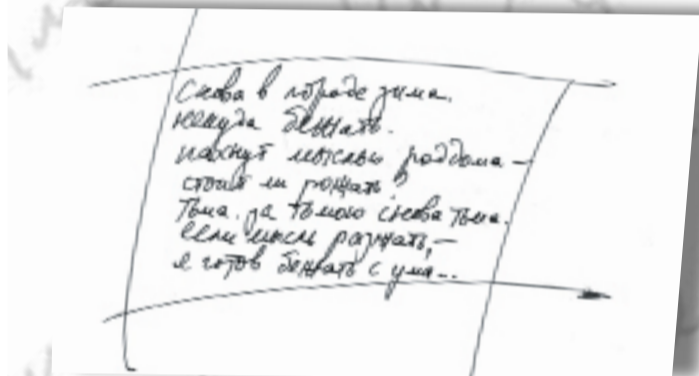 Снова в городе зима.
некуда бежать.
пахнут мыслью роддома –
стоит ли рожать?
Тьма. за тьмою снова тьма.
если мысль разжать, –
я готов бежать с ума...